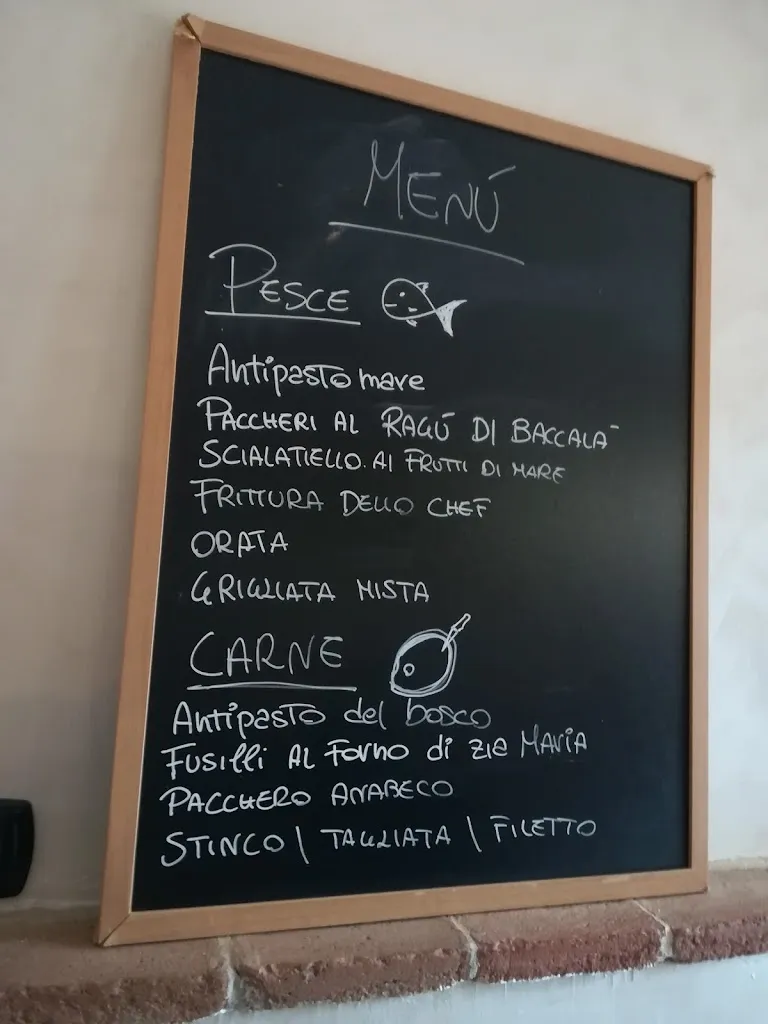 MENÚ
PESCE
Antipasto mare
PACCHERI AL RAGÚ DI BACCALÀ
SCIALATIELLO AI FRUTTI DI MARE
FRITTURA DELLO CHEF
ORATA
GRIGLIATA MISTA
CARNE
Antipasto del bosco
Fusilli AL Forno di zia Maria
PACCHERO ANABECO
STINCO \ TAGLIATA \ FILETTO